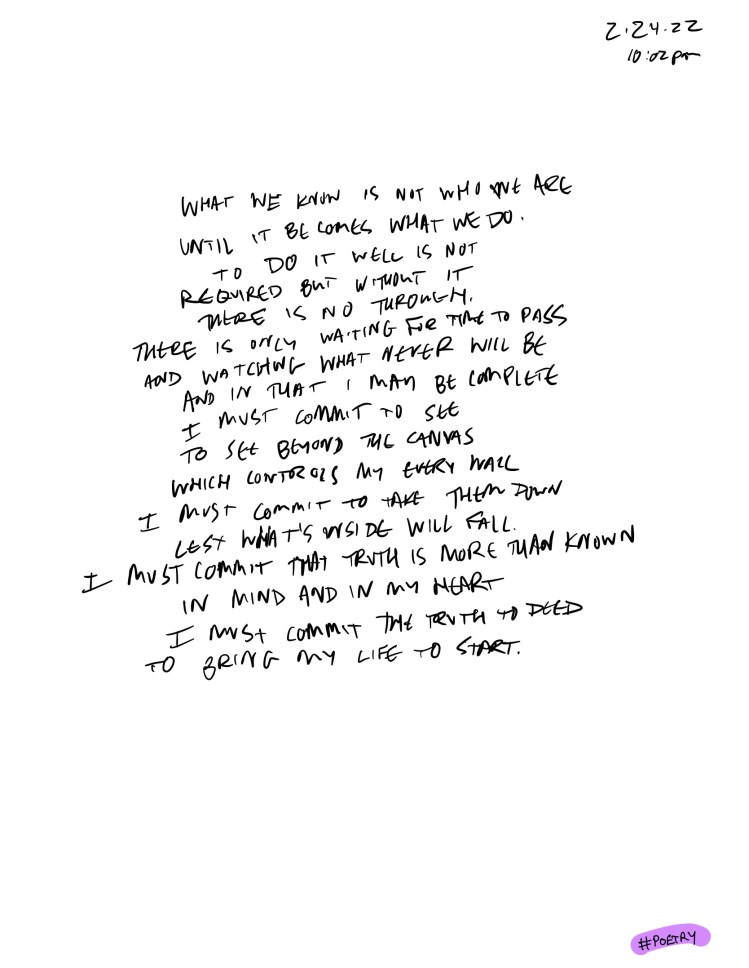 2.24.22
10:02pm
WHAT WE KNOW IS NOT WHO WE ARE
UNTIL IT BECOMES WHAT WE DO.
TO DO IT WELL IS NOT
REQUIRED BUT WITHOUT IT
THERE IS NO THROUGH.
THERE IS ONLY WAITING FOR TIME TO PASS
AND WATCHING WHAT NEVER WILL BE
AND IN THAT I MAY BE COMPLETE
I MUST COMMIT TO SEE
TO SEE BEYOND THE CANVAS
WHICH CONTROLS MY EVERY WALL
I MUST COMMIT TO TAKE THEM DOWN
LEST WHAT'S INSIDE WILL FALL.
I MUST COMMIT THAT TRUTH IS MORE THAN KNOWN
IN MIND AND IN MY HEART
I MUST COMMIT THE TRUTH TO DEED
TO BRING MY LIFE TO START.
#POETRY